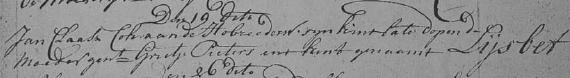 Den 19 dito
Jan Claasz Coh aande Hobreeden syn kint late doopen de
Moeder gent Grietje Pieters int kint genaamt Lijsbet
den 26 dito